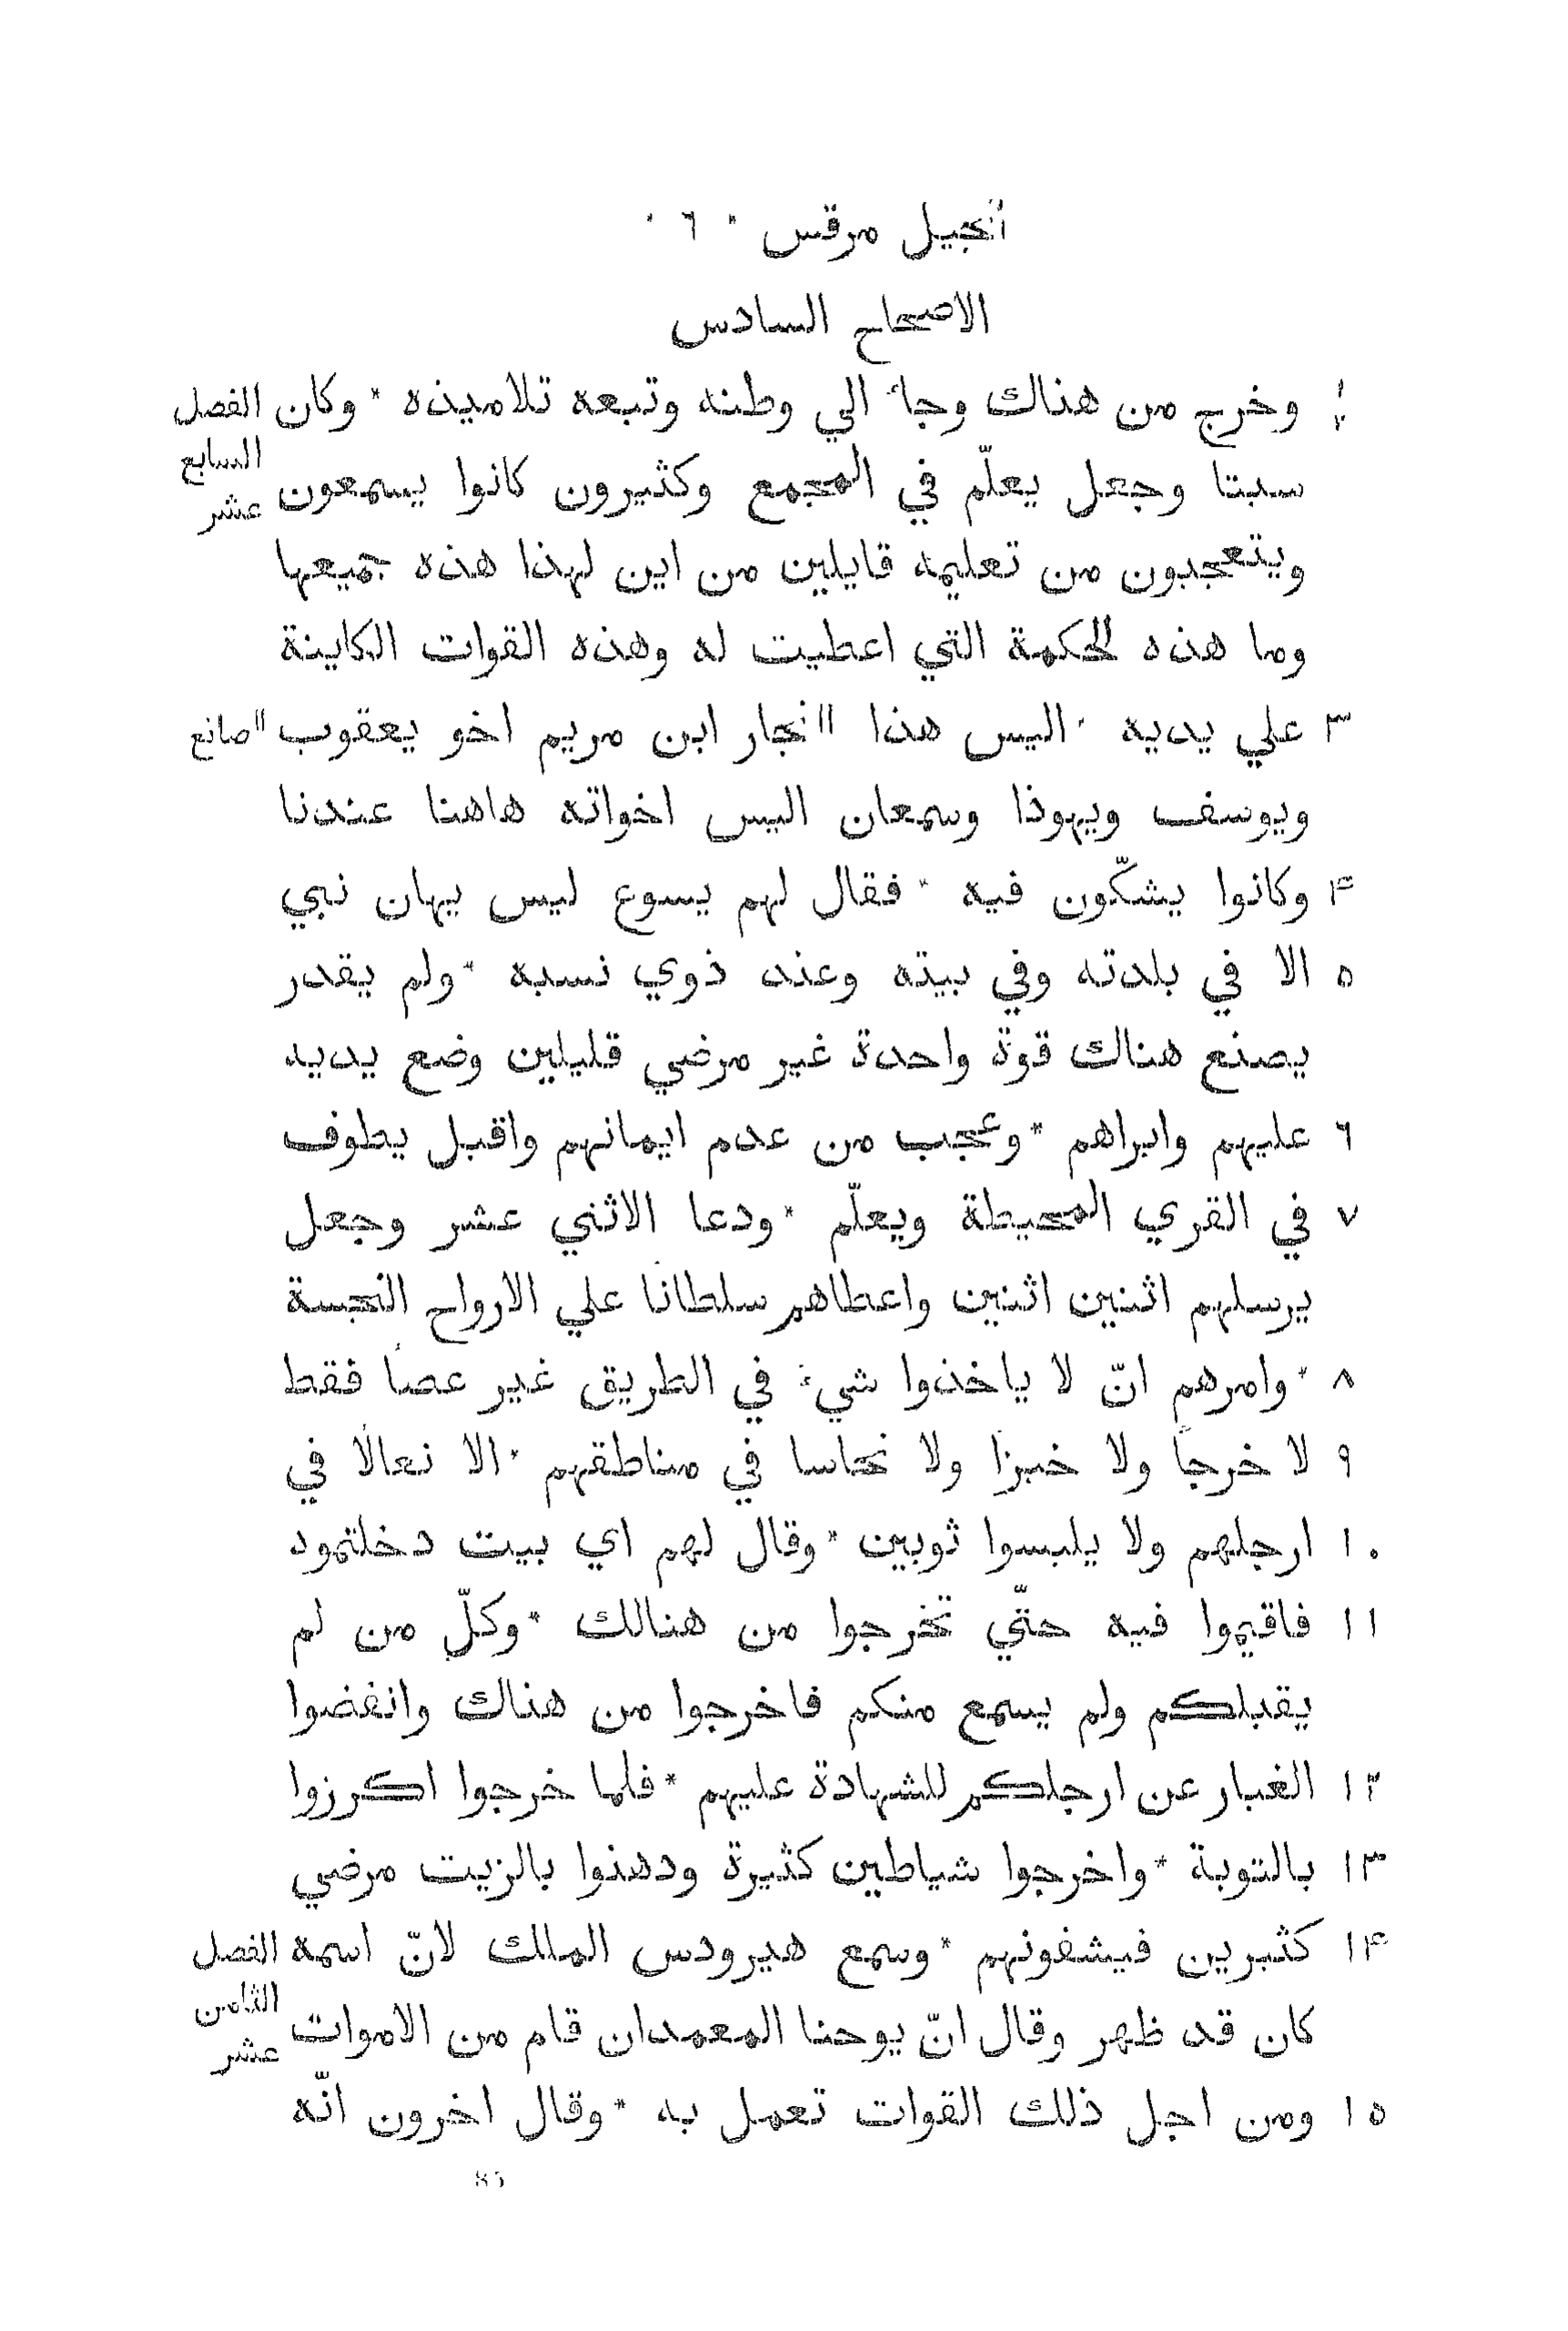 أنجيل مرقس * ٦ *
الاصحاح السادس
١ وخرج من هناك وجاء الي وطنه وتبعه تلاميذه * وكان
٢ سبتا وجعل يعلّم في المجمع وكثيرون كانوا يسمعون
الفصل
السابع
عشر
ويتعجبون من تعليمه قايلين من اين لهذا هذه جميعها
وما هذه الحكمة التي اعطيت له وهذه القوات الكاينة
٣ علي يديه * اليس هذا "نجار ابن مريم اخو يعقوب
"صانع
ويوسف ويهوذا وسمعان اليس اخواته هاهنا عندنا
۴ وكانوا يشكّون فيه * فقال لهم يسوع ليس يهان نبي
٥ الا في بلدته وفي بيته وعند ذوي نسبه * ولم يقدر
يصنع هناك قوة واحدة غير مرضي قليلين وضع يديه
٦ عليهم وابراهم * وعجب من عدم ايمانهم واقبل يطوف
٧ في القري المحيطة ويعلّم * ودعا الاثني عشر وجعل
يرسلهم اثنين اثنين واعطاهم سلطانًا علي الارواح النجسة
٨ * وامرهم انّ لا ياخذوا شيء في الطريق غير عصًا فقط
٩ لا خرجًا ولا خبزًا ولا نحاسا في مناطقهم * الا نعالًا في
١٠ ارجلهم ولا يلبسوا ثوبين * وقال لهم اي بيت دخلتموه
١١ فاقيموا فيه حتّي تخرجوا من هنالك * وكلّ من لم
يقبلكم ولم يسمع منكم فاخرجوا من هناك وانفضوا
١٢ الغبار عن ارجلكم للشهادة عليهم * فلما خرجوا اكرزوا
١٣ بالتوبة * واخرجوا شياطين كثيرة ودهنوا بالزيت مرضي
١۴ كثيرين فيشفونهم * وسمع هيرودس الملك لانّ اسمه
الفصل
الثامن
عشر
كان قد ظهر وقال انّ يوحنا المعمدان قام من الاموات
١٥ ومن اجل ذلك القوات تعمل به * وقال اخرون انّه
85